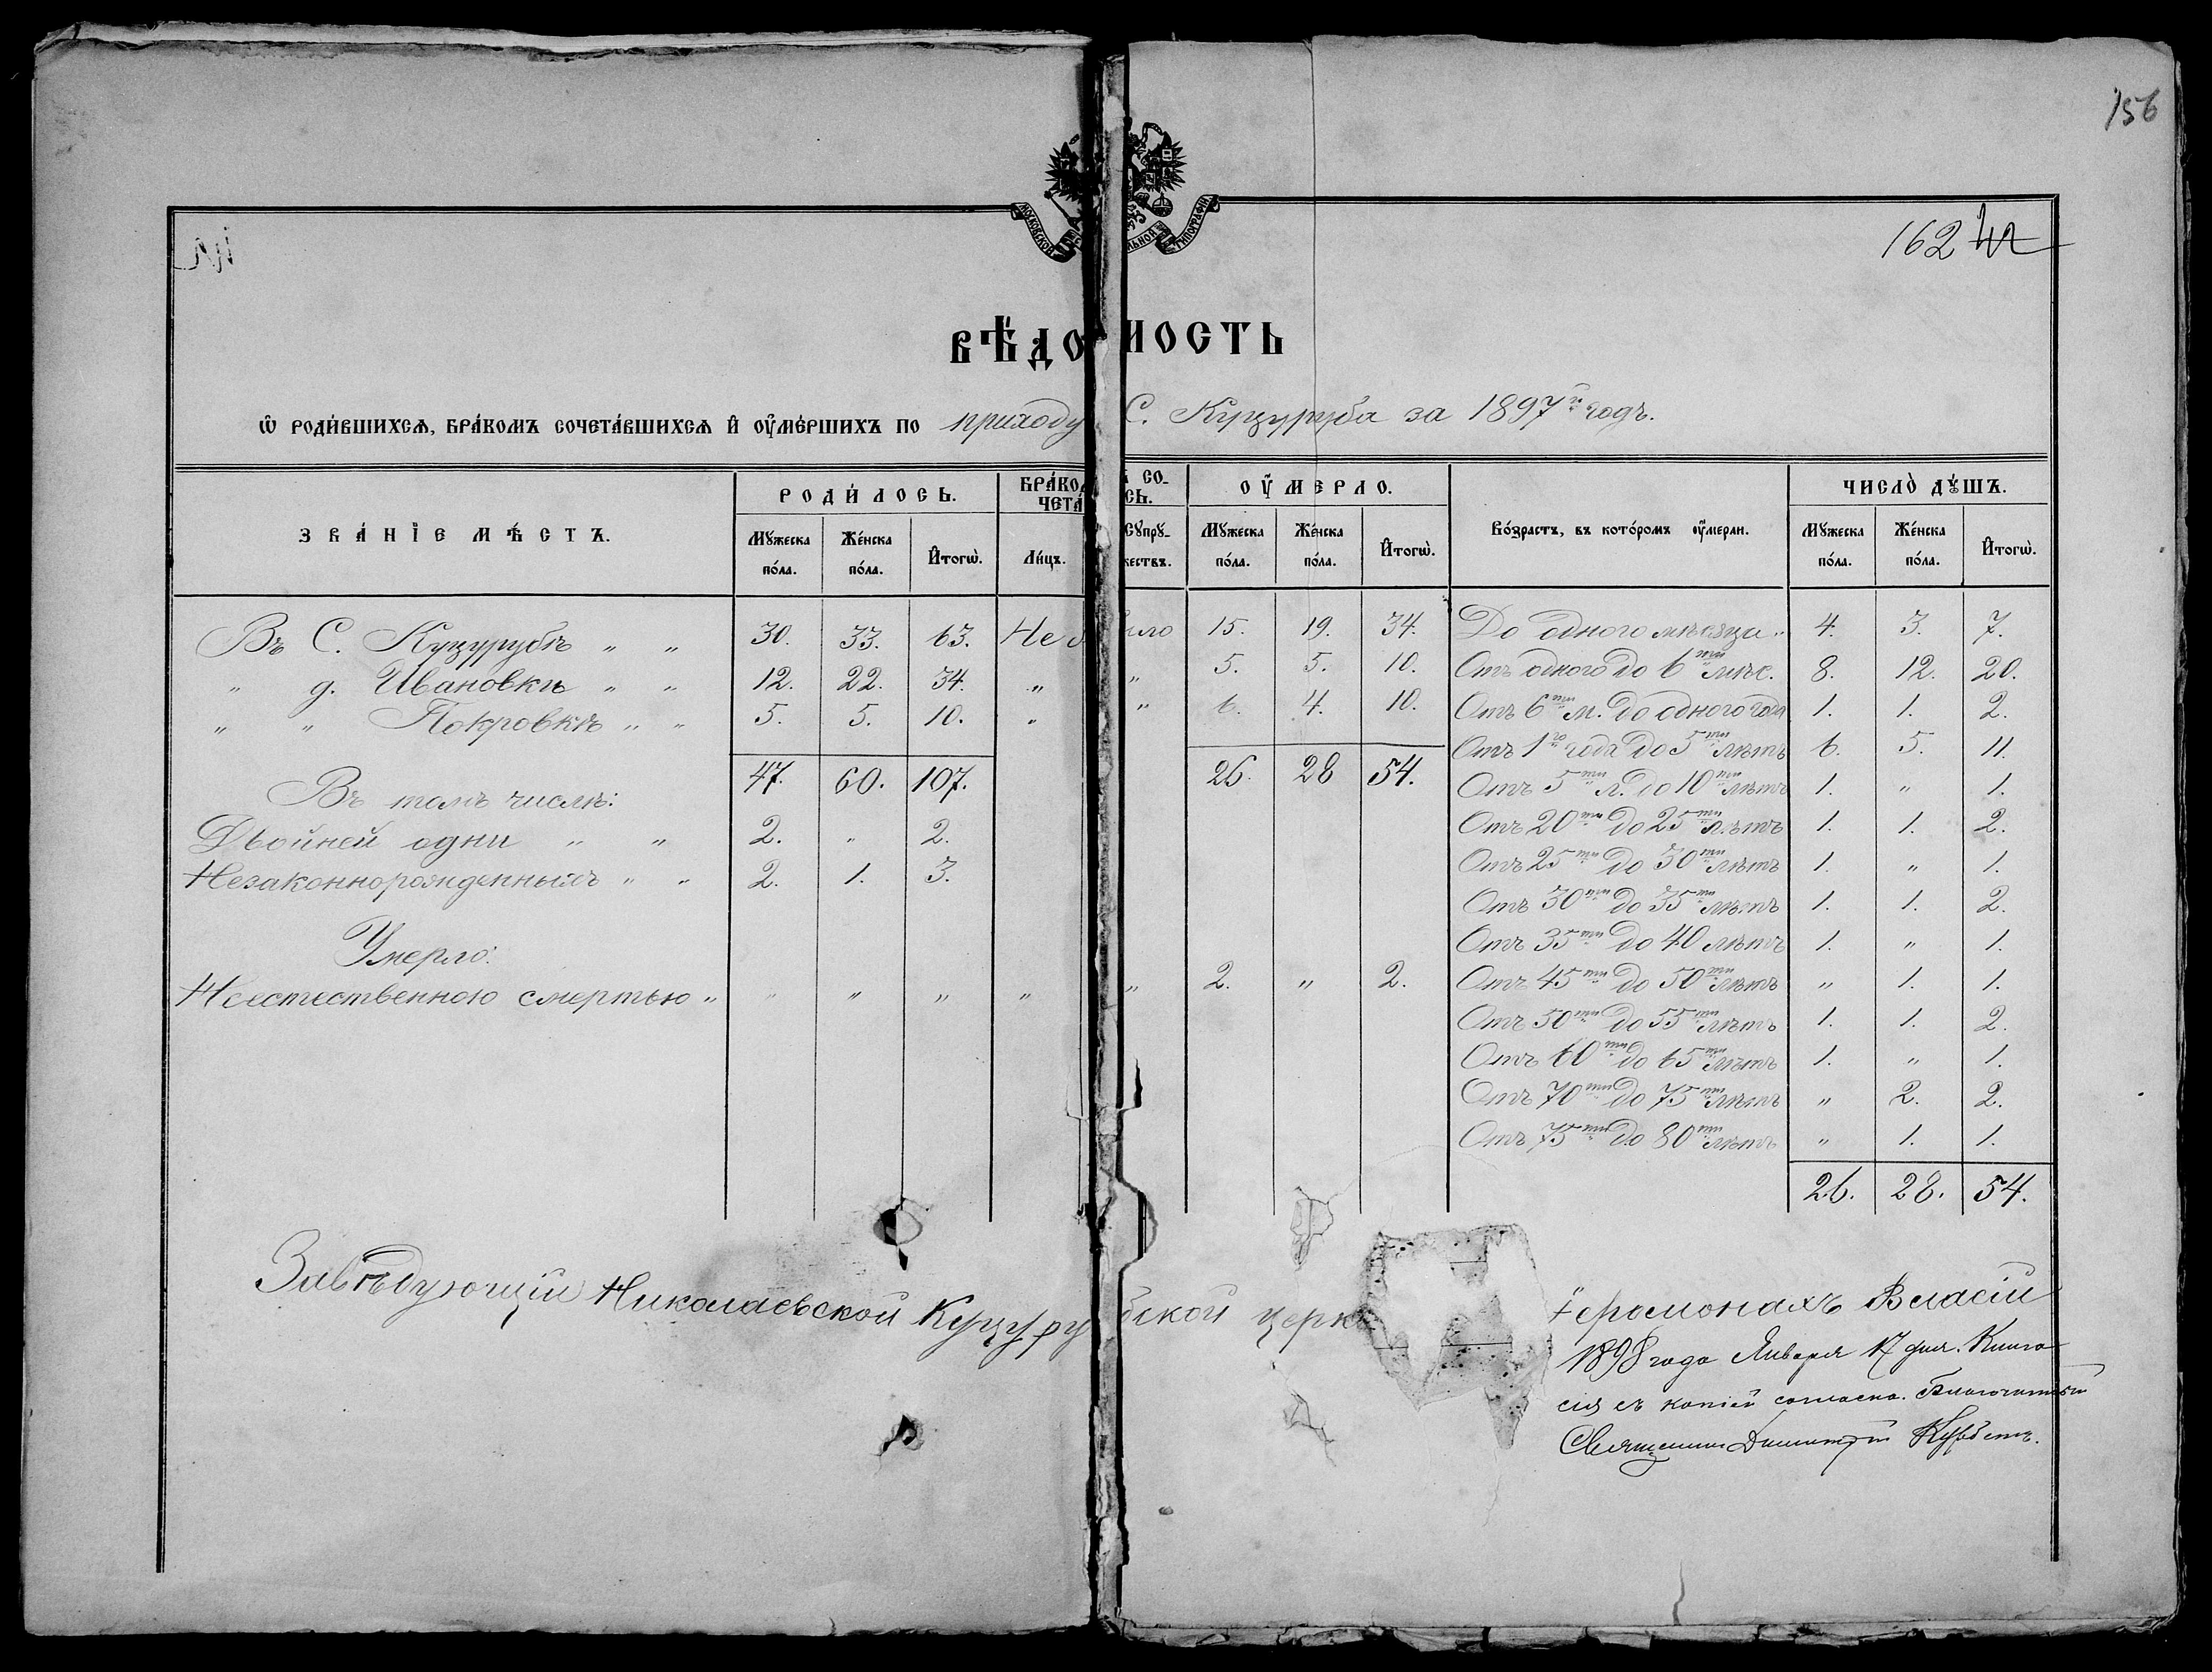 156
162
МОСКОВСКОЙ СѴНОДАЛЬНОЙ ТИПОГРАФІИ
ВѢДОМОСТЬ
Ѡ РОДИ́ВШИХСѦ, БРА́КОМЪ СОЧЕТА́ВШИХСѦ И҆ ОУ҆МЕ́РШИХЪ ПО приходу С. Куцуруба за 1897й годъ.
ЗВА́НІЕ МѢ́СТЪ. РОДИ́ЛОСЬ. БРА́КОМ СО- ОУ҆МЕРЛО. Во́зрастъ, въ кото́ромъ оу҆́мерли. ЧИСЛО̀ ДꙊ́ШЪ.
ЧЕТА СЬ.
Мꙋ́жеска по́ла. Же́нска по́ла. И҆тогѡ̀. Ли́цъ. Сꙋпрꙋ́- жествъ. Мꙋ́жеска по́ла. Же́нска по́ла. И҆тогѡ̀. Мꙋ́жеска по́ла. Же́нска по́ла. И҆тогѡ̀.
Въ С. Куцурубѣ " " 30. 33. 63. Не было 15. 19. 34. До одного мѣсяца " 4. 3. 7.
" д. Ивановкѣ " " 12. 22. 34. " " 5. 5. 10. Отъ одного до 6ти мѣс. 8. 12. 20.
" " Покровкѣ " " 5. 5. 10. " " 6. 4. 10. Отъ 6ти м. до одного года 1. 1. 2.
Отъ 1го года до 5ти лѣтъ 6. 5. 11.
47. 60. 107. 26. 28 54. Отъ 5ти л. до 10ти лѣтъ 1. " 1.
Въ томъ числѣ:
Отъ 20ти до 25ти лѣтъ 1. 1. 2.
Двойней одни " " 2. " 2.
Отъ 25ти до 30ти лѣтъ 1. " 1.
Незаконнорожденныхъ " " 2. 1. 3.
Отъ 30ти до 35ти лѣтъ 1. 1. 2.
Умерло:
Отъ 35ти до 40 лѣтъ 1. " 1.
Неестественною смертью " " " " " " 2. " 2. Отъ 45ти до 50ти лѣтъ " 1. 1.
Отъ 50ти до 55ти лѣтъ 1. 1. 2.
Отъ 60ти до 65ти лѣтъ 1. " 1.
Отъ 70ти до 75ти лѣтъ " 2. 2.
Отъ 75ти до 80ти лѣтъ " 1. 1.
26. 28. 54.
Завѣдующій Николаевской Куцурубской церк Іеромонахъ Власій
1898 года Января 17 дня. Книга
сія съ копіей согласна. Благочинный
Священникъ Димитрій